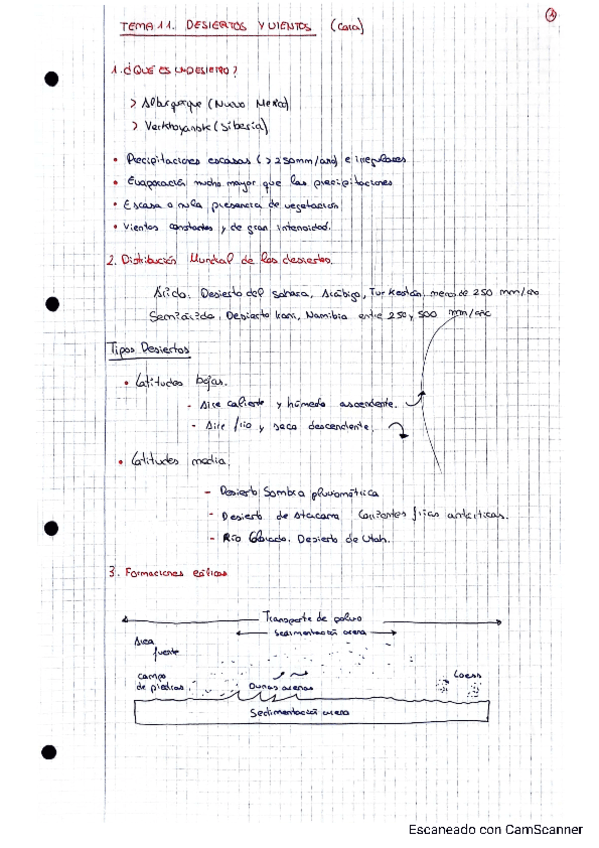 TEMA 11. DESIERTOS Y VIENTOS (Cara)
1. ¿QUÉ ES UN DESIERTO?
> Alburquerque (Nuevo Mexico)
> Verkhoyansk (Siberia)
• Precipitaciones escasas (>250mm/año) e irregulares
• Evaporación mucho mayor que las precipitaciones
• Escasa o nula presencia de vegetación
• Vientos constantes y de gran intensidad.
2. Distribución Mundial de los desiertos.
Árido. Desierto del Sahara, Arábigo, Turkestán, menos de 250 mm/año
Semiárido, Desierto Iraní, Namibia entre 250 y 500 mm/año
Tipos Desiertos
• Latitudes bajas.
- Aire caliente y húmedo ascendente.
- Aire frío y seco descendente.
• Latitudes media.
- Desierto Sombra pluviométrica
- Desierto de Atacama Corrientes frías antárticas.
- Río Colorado. Desierto de Utah.
3. Formaciones eólicas
Transporte de polvo
Sedimentación arena
Área
fuente
campo
de piedras
Dunas arenas
Loess
Sedimentación arena
Escaneado con CamScanner